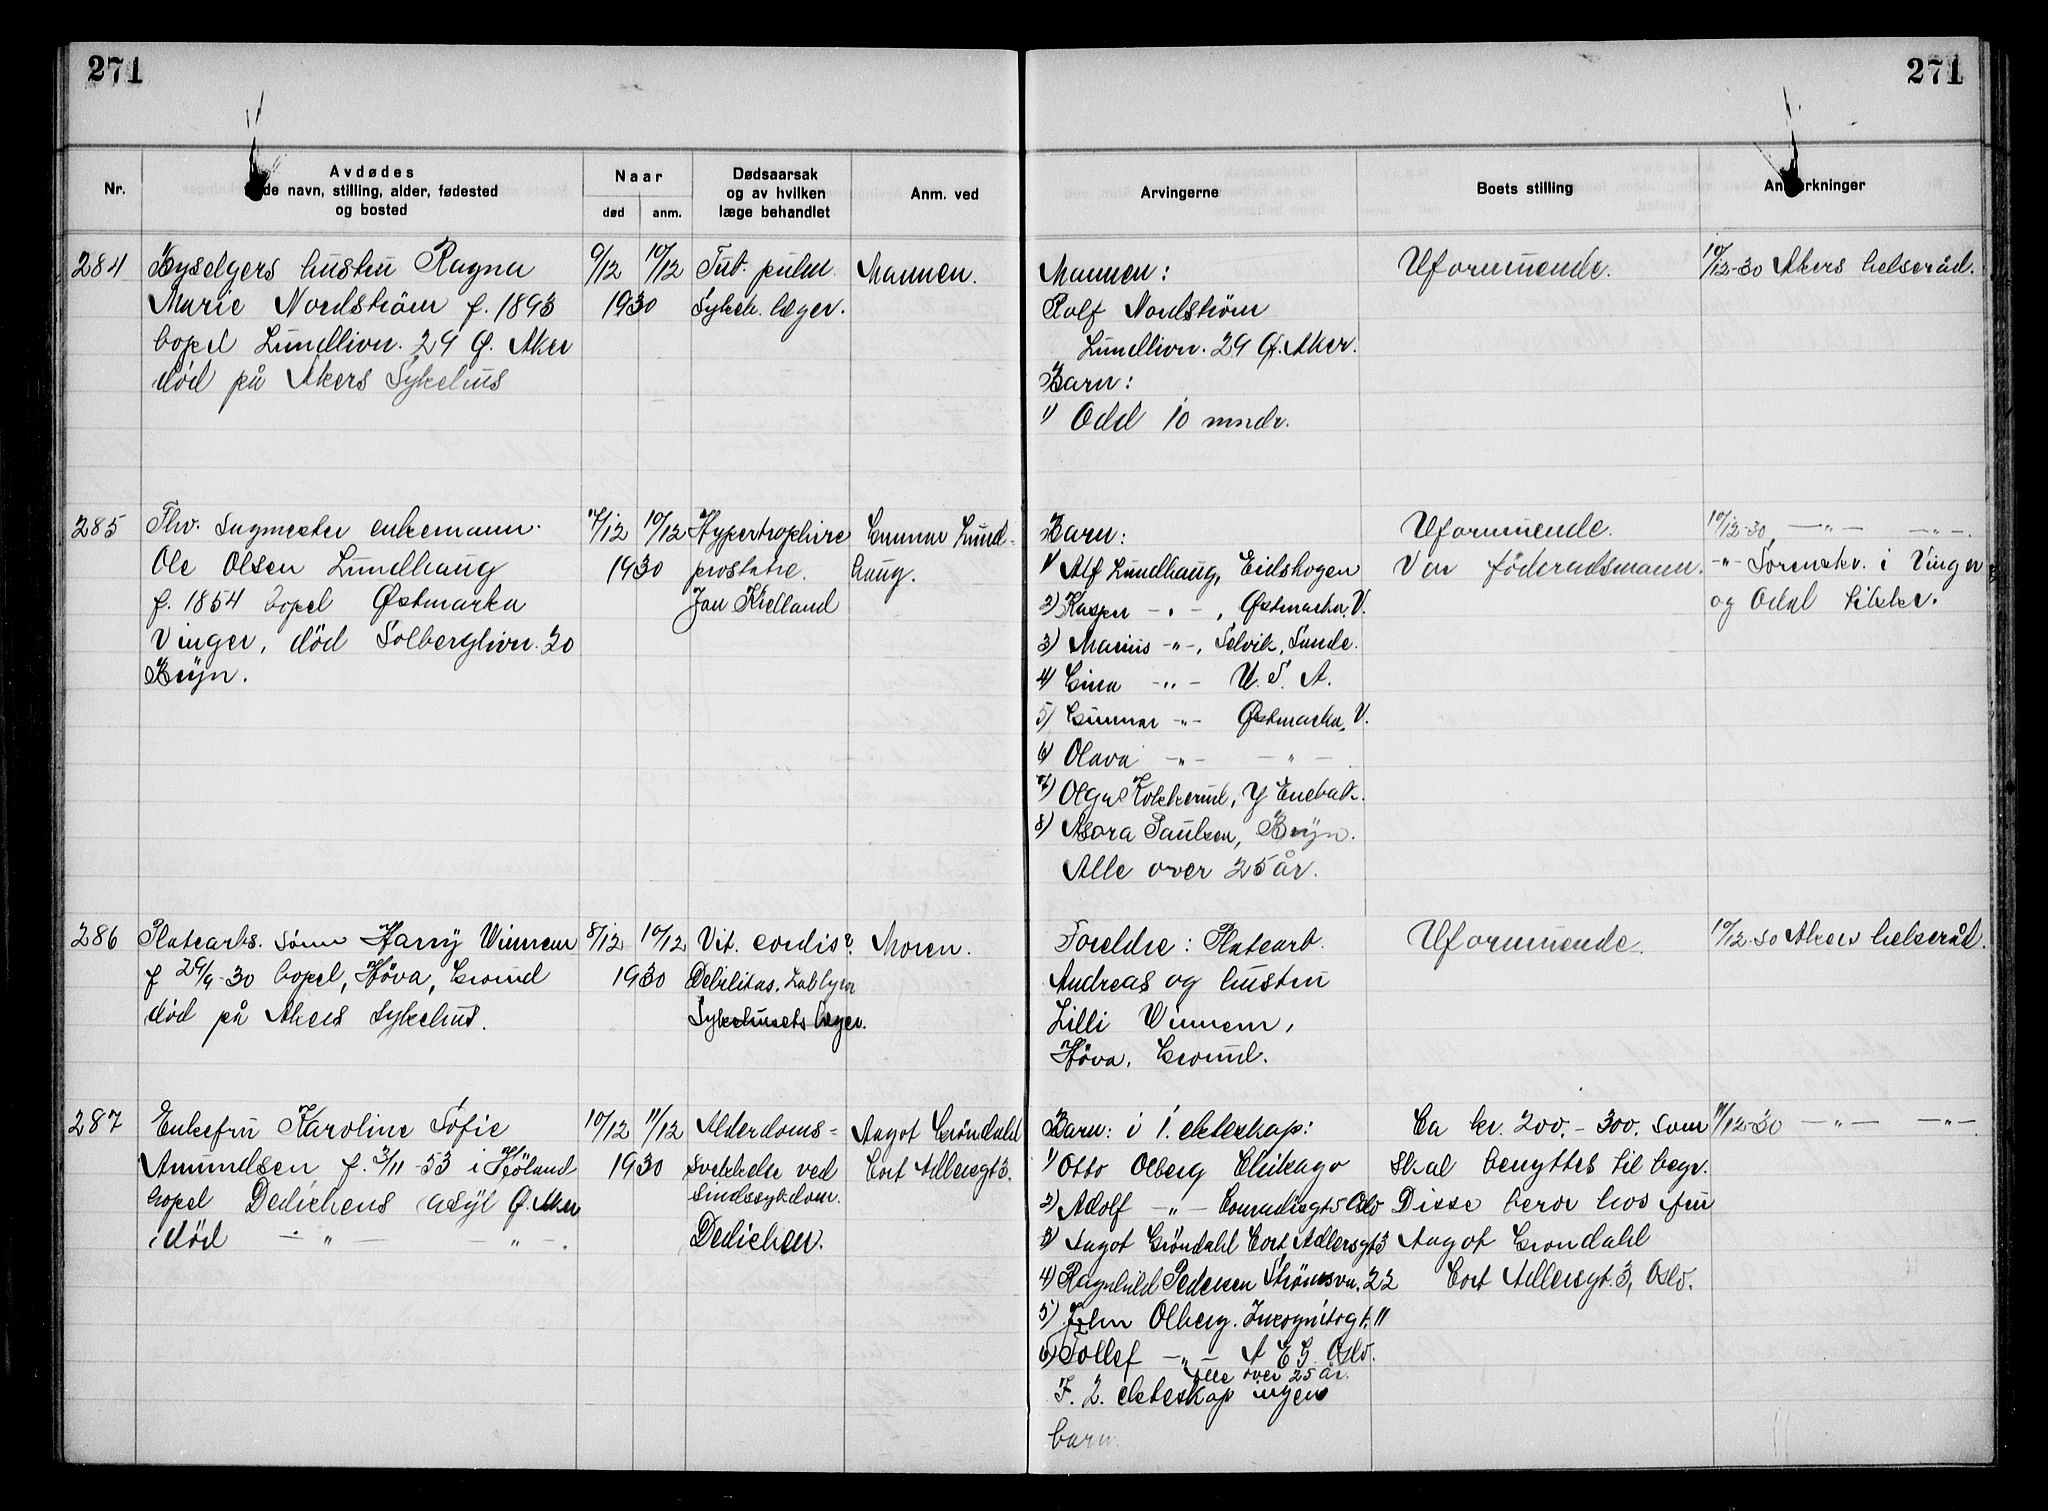 271
271
Nr.
Avdødes
de navn, stilling, alder, fødested
og bosted
Naar
død
anm.
Dødsaarsak
og av hvilken
læge behandlet
Anm. ved
Arvingerne
Boets stilling
Anmerkninger
284
hustru Ragna
Marie Nordstrøm f. 1893
bopel Lundlivn. 29 Ø. Aker
død på Akers Sykehus
9/12 10/12
1930
Tub. pulm.
Sykeh. læger.
Mannen.
Mannen:
Rolf Nordstrøm
Lundlivn. 29 Ø. Aker.
Barn:
1) Odd 10 mndr.
Uformuende.
10/12-30 Akers helseråd.
285
Fhv. Sagmester enkemann
Ole Olsen Lundhaug
f. 1854 bopel Østmarka
Vinger, død Solberglivn. 20
Bryn.
7/12 10/12
1930
Hypertrophire
prostate.
Jan Kielland
Gunnar Lund-
haug.
Barn:
1) Alf Lundhaug, Eidskogen
2) Kasper -"-, Østmarka, V.
3) Marius -"-, Selvik, Sande.
4) Gina -"- U. S. A.
5) Gunnar -"- Østmarka, V.
6) Olava -"- -"-
7) Olga Kokkerud, Y Enebak.
8) Asora Paulsen, Bryn.
Alle over 25 år.
Uformuende.
Var föderadsmann.
10/12-30 -"- -"-.
-"- Sorenskr. i Vinger
og Odal tilskr.
286
Platearb. sønn Harry Vinnem
f 29/9-30 bopel, Høva, Grorud
død på Akers Sykehus.
8/12 10/12
1930
Vit. cordis?
Debilitas.
Sykehusets læger.
Moren.
Foreldre: Platearb.
Andreas og hustru
Lilli Vinnem,
Høva, Grorud.
Uformuende.
10/12-30 Akers helseråd.
287
Enkefru Karoline Sofie
Amundsen f. 3/11-53 i Høland
bopel Dedichens asyl Ø. Aker
død -"- -"-.
10/12 11/12
1930
Alderdoms-
svekkelse ved
sindssykdom.
Dedichen.
Aagot Grøndahl
Cort Adlersgt 3.
Barn: i 1. ekteskap:
1) Otto Olberg Chikago
2) Adolf -"- Conradisgt 5 Oslo
3) Aagot Grøndahl Cort Adlersgt 3
4) Ragnhild Pedersen Strømsvn. 22
5) John Olberg. Inkognitogt. 11
6) Tollef -"- A E G Oslo.
Alle over 25 år.
I. 2. ekteskap ingen
barn.
Ca kr. 200.- 300. som
skal benyttes til begr.
Disse beror hos fru
Aagot Grøndahl
Cort Adlersgt. 3, Oslo.
11/12-30 -"- -"-.